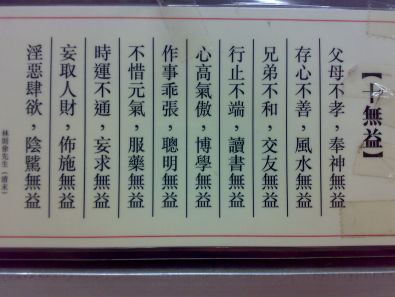 【十無益】
父母不孝，奉神無益
存心不善，風水無益
兄弟不和，交友無益
行止不端，讀書無益
心高氣傲，博學無益
作事乖張，聰明無益
不惜元氣，服藥無益
時運不通，妄求無益
妄取人財，佈施無益
淫惡肆欲，陰騭無益
林則徐先生（清末）